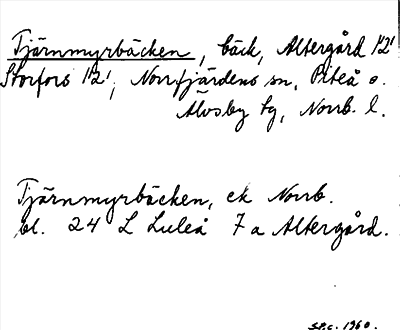 Tjärnmyrbäcken, bäck, Altergård 1/2!
Storfors 1/2!, Norrfjärdens sn, Piteå o.
Älvsby tg, Norrb. l.
Tjärnmyrbäcken, ek Norrb.
bl. 24 L Luleå 7 a Altergård.
SPC. 1960.